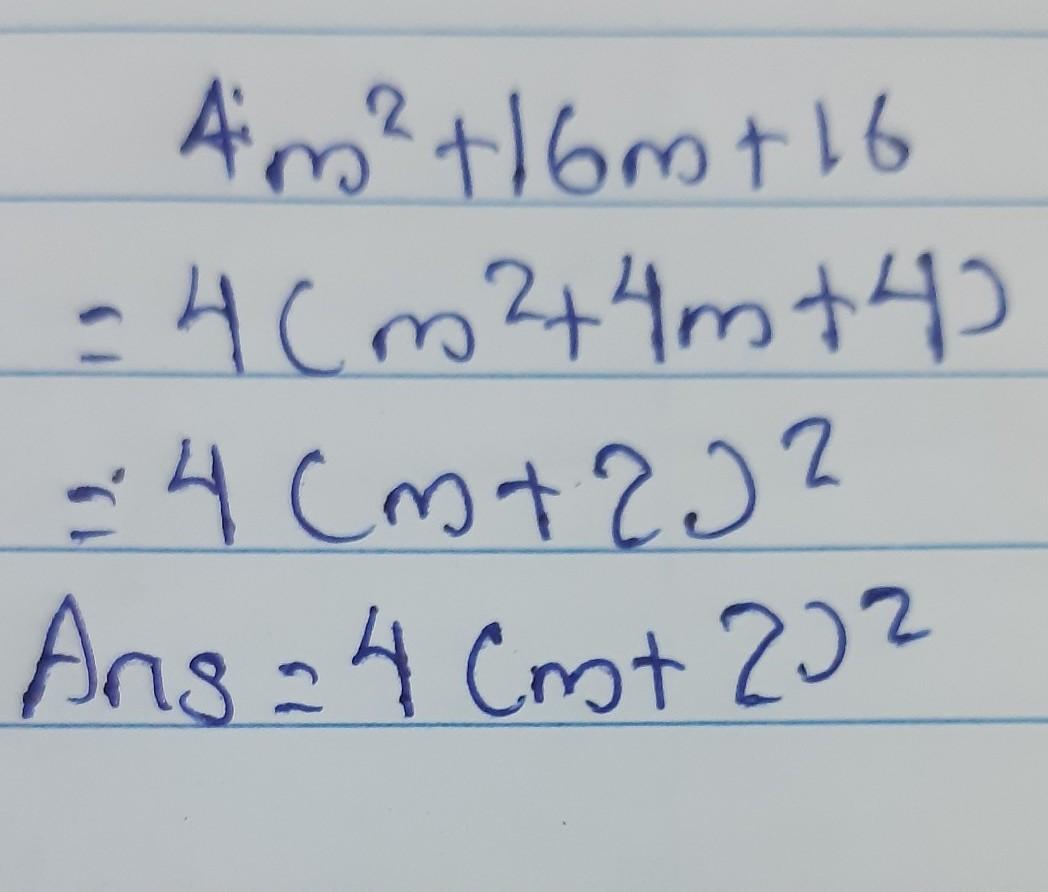 4m²+16m+16
=4(m²+4m+4)
=4(m+2)²
Ans=4(m+2)²